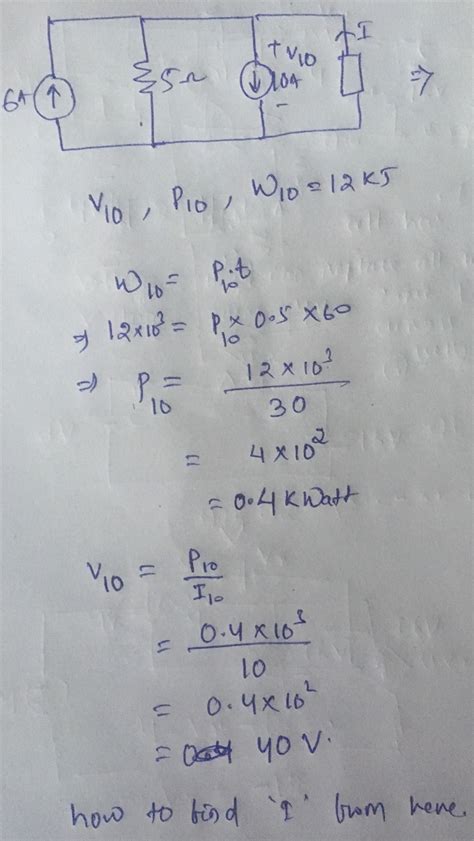 6A
5Ω
+ V10
10A
-
I
⇒
V10 , P10 , W10 = 12 KJ
W10 = P10.t
⇒ 12×10³ = P10 × 0.5 × 60
⇒ P10 = 12 × 10³ / 30
= 4 × 10²
= 0.4 K Watt
V10 = P10 / I10
= 0.4 × 10³ / 10
= 0.4 × 10²
= 40 V.
how to find 'I' from here